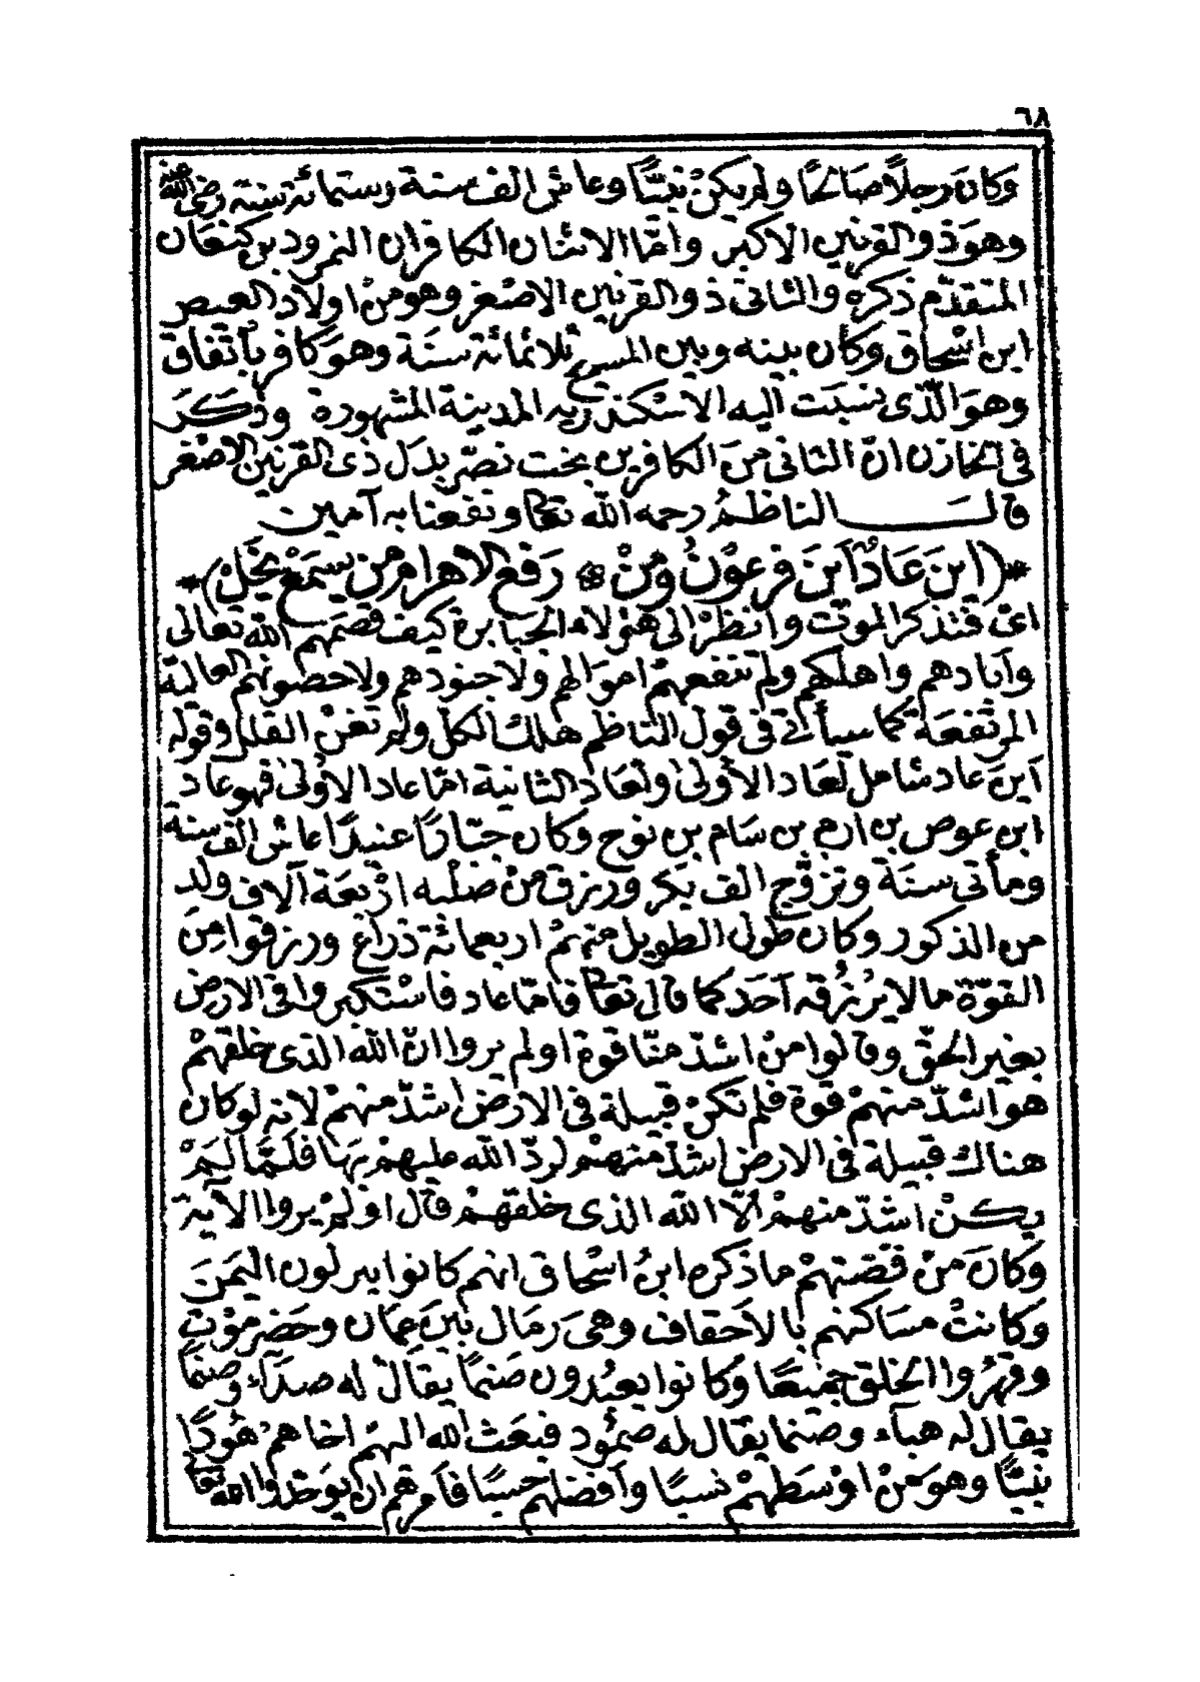 ٦٨
وكانَ رجلاً صالحًا ولم يكنْ نبيًّا وعاش الف سنة وستمائة سنة رضى الله عنه
وهوَ ذو القرنين الاكبر وامّا الاثنان الكافران النمرود بن كنعان
المتقدّم ذكرهُ والثانى ذو القرنين الاصْغر وهو منْ اولاد العيص
ابن اسْحاق وكان بينه وبين المسيح ثلاثمائة سنَة وهوَ كافر باتفاق
وهوَ الّذى نسبَت اليه الاسْكندريه المدينة المشهورة وذكَرَ
فى الخازن انّ الثانى منَ الكافرين بخت نصّر بدَل ذى القرنين الاصْغر
قالَ الناظمُ رحمه الله تعالى ونفعنا به آمين
*(اينَ عَادٌ اَينَ فرعوْنُ ومنْ * رَفعَ الاهرام من يسمَعْ يخَلْ)*
اىْ فتذكر الموْت وانظرْ الى هؤلاء الجبَابرة كيف قصمَهم الله تعَالى
وآبادهم واهلكهم ولم تنفعهمْ امواَلهم ولا جنودهم ولا حصونهم العالية
المرتفعَة كما سيأتى فى قول الناظم هلك الكلّ ولم تغنْ القلل وقوله
اَينَ عاد شامل لعَاد الأولى ولعَاد الثانية امّا عاد الاوْلى فهو عاد
ابن عوص بن ارم بن سَام بن نوح وكان جبّارًا عنيدًا عاش الف سنة
ومأتى سنَة وتزوَّج الف بكر ورزق منْ صُلْبه ارْبعَة آلاف ولد
من الذكور وكان طول الطويل منهمْ اربعمائة ذراعْ ورزقوا منَ
القوّة مالا يرْزُقه اَحَد كما قال تعَالى فامّا عاد فاسْتكبروا فى الارض
بغير الحقّ وقالوا منْ اشدّ منّا قوة اولم يروا انّ الله الذى خلقهمْ
هو اشدّ منهمْ قوة فلم تكنْ قبيلة فى الارض اشدّ منهمْ لانه لو كان
هناك قبيلة فى الارض اشدّ منهمْ لردّ الله عليهمْ بهَا فلَمّا لَمْ
يكنْ اشدّ منهمْ الّا الله الذى خلقهمْ قال اولمْ يروا الآية
وكانَ منْ قصّتهمْ ما ذكره ابنُ اسْحاق انهم كانوا ينزلون اليمَنَ
وَكانتْ مسَاكنهم بالاَحقاف وهىَ رمَال بَينَ عمَان وحَضرموْت
وقهرُوا الخلق جَميعًا وَكانوا يعبُدون صَنمًا يقال له صدآء وصَنمًا
يقال له هبآء وصنما يقال له صمُود فبعَث الله اليهمْ اخاهمْ هُودًا
نبيًّا وهوَ منْ اوْسَطهمْ نسبًا وأفضلهم حسبًا فأمرهم ان يوَحّدوا الله تعالى